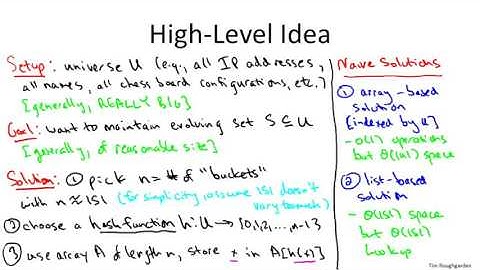 High-Level Idea
Setup: universe U (e.g., all IP addresses,
all names, all chess board configurations, etc.)
[generally, REALLY BIG]
Goal: want to maintain evolving set S ⊆ U
[generally, of reasonable size]
Solution: ① pick n = # of "buckets"
with n ≈ |S| (for simplicity, assume |S| doesn't
vary too much)
② choose a hash function h: U → {0,1,2,...,n-1}
③ use array A of length n, store x in A[h(x)]
Naive Solutions
① array-based
solution
[indexed by U]
- O(1) operations
but Θ(|U|) space
② list-based
solution
- Θ(|S|) space
but Θ(|S|)
Lookup
Tim Roughgarden